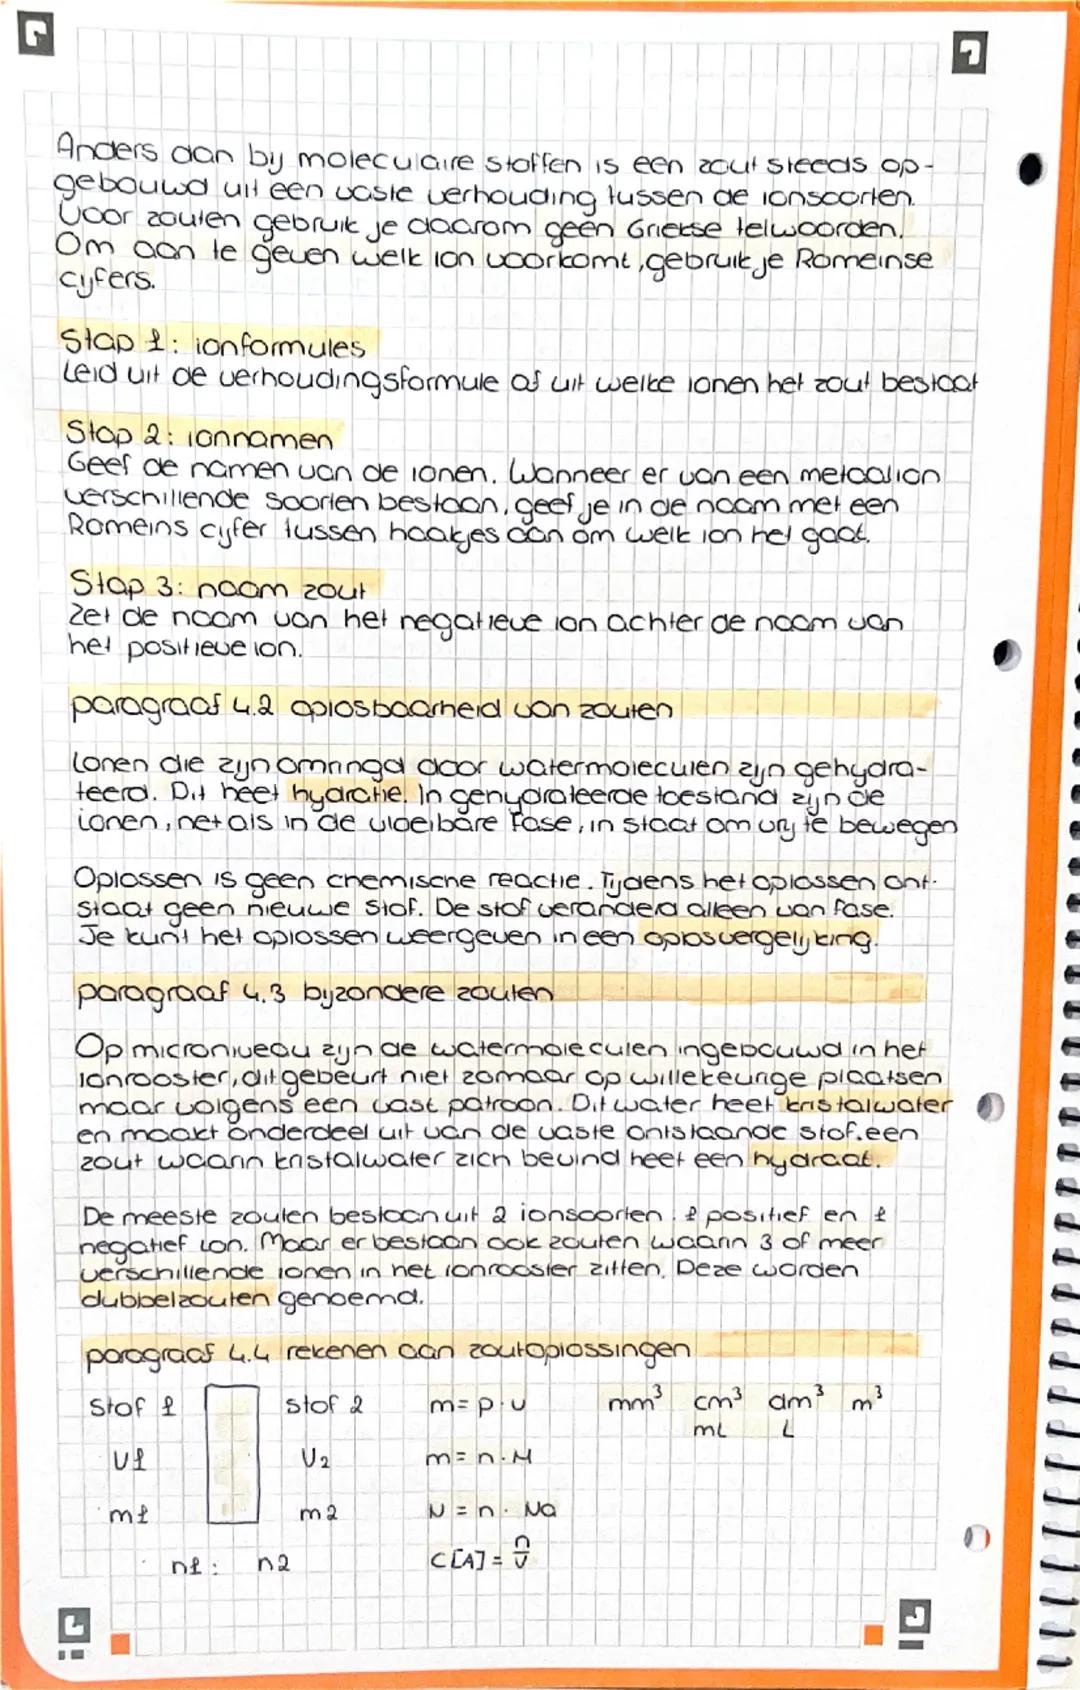 Anders dan bij moleculaire stoffen is een zout steeds op-
gebouwd uit een vaste verhouding tussen de ionsoorten.
Voor zouten gebruik je daarom geen Griekse telwoorden.
Om aan te geven welk ion voorkomt, gebruik je Romeinse
cijfers.
Stap 1: ionformules
Leid uit de verhoudingsformule af uit welke ionen het zout bestaat
Stap 2: ionnamen
Geef de namen van de ionen. Wanneer er van een metaalion
verschillende soorten bestaan, geef je in de naam met een
Romeins cijfer tussen haakjes aan om welk ion het gaat.
Stap 3: naam zout
Zet de naam van het negatieve ion achter de naam van
het positieve ion.
paragraaf 4.2 oplosbaarheid van zouten
Ionen die zijn omringd door watermoleculen zijn gehydra-
teerd. Dit heet hydratie. In gehydrateerde toestand zijn de
ionen, net als in de vloeibare fase, in staat om vrij te bewegen
Oplossen is geen chemische reactie. Tijdens het oplossen ont-
staat geen nieuwe stof. De stof veranderd alleen van fase.
Je kunt het oplossen weergeven in een oplosvergelijking.
paragraaf 4.3 bijzondere zouten
Op microniveau zijn de watermoleculen ingebouwd in het
ionrooster, dit gebeurt niet zomaar op willekeurige plaatsen
maar volgens een vast patroon. Dit water heet kristalwater
en maakt onderdeel uit van de vaste ontstaande stof. een
zout waarin kristalwater zich bevind heet een hydraat.
De meeste zouten bestaan uit 2 ionsoorten: 1 positief en 1
negatief ion. Maar er bestaan ook zouten waarin 3 of meer
verschillende ionen in het ionrooster zitten. Deze worden
dubbelzouten genoemd.
paragraaf 4.4 rekenen aan zoutoplossingen
Stof 1 stof 2 m = ρ · V mm³ cm³ dm³ m³
mL L
V1 V2 m = n · M
m1 m2 N = n · Na
n1 : n2 C[A] = n/V